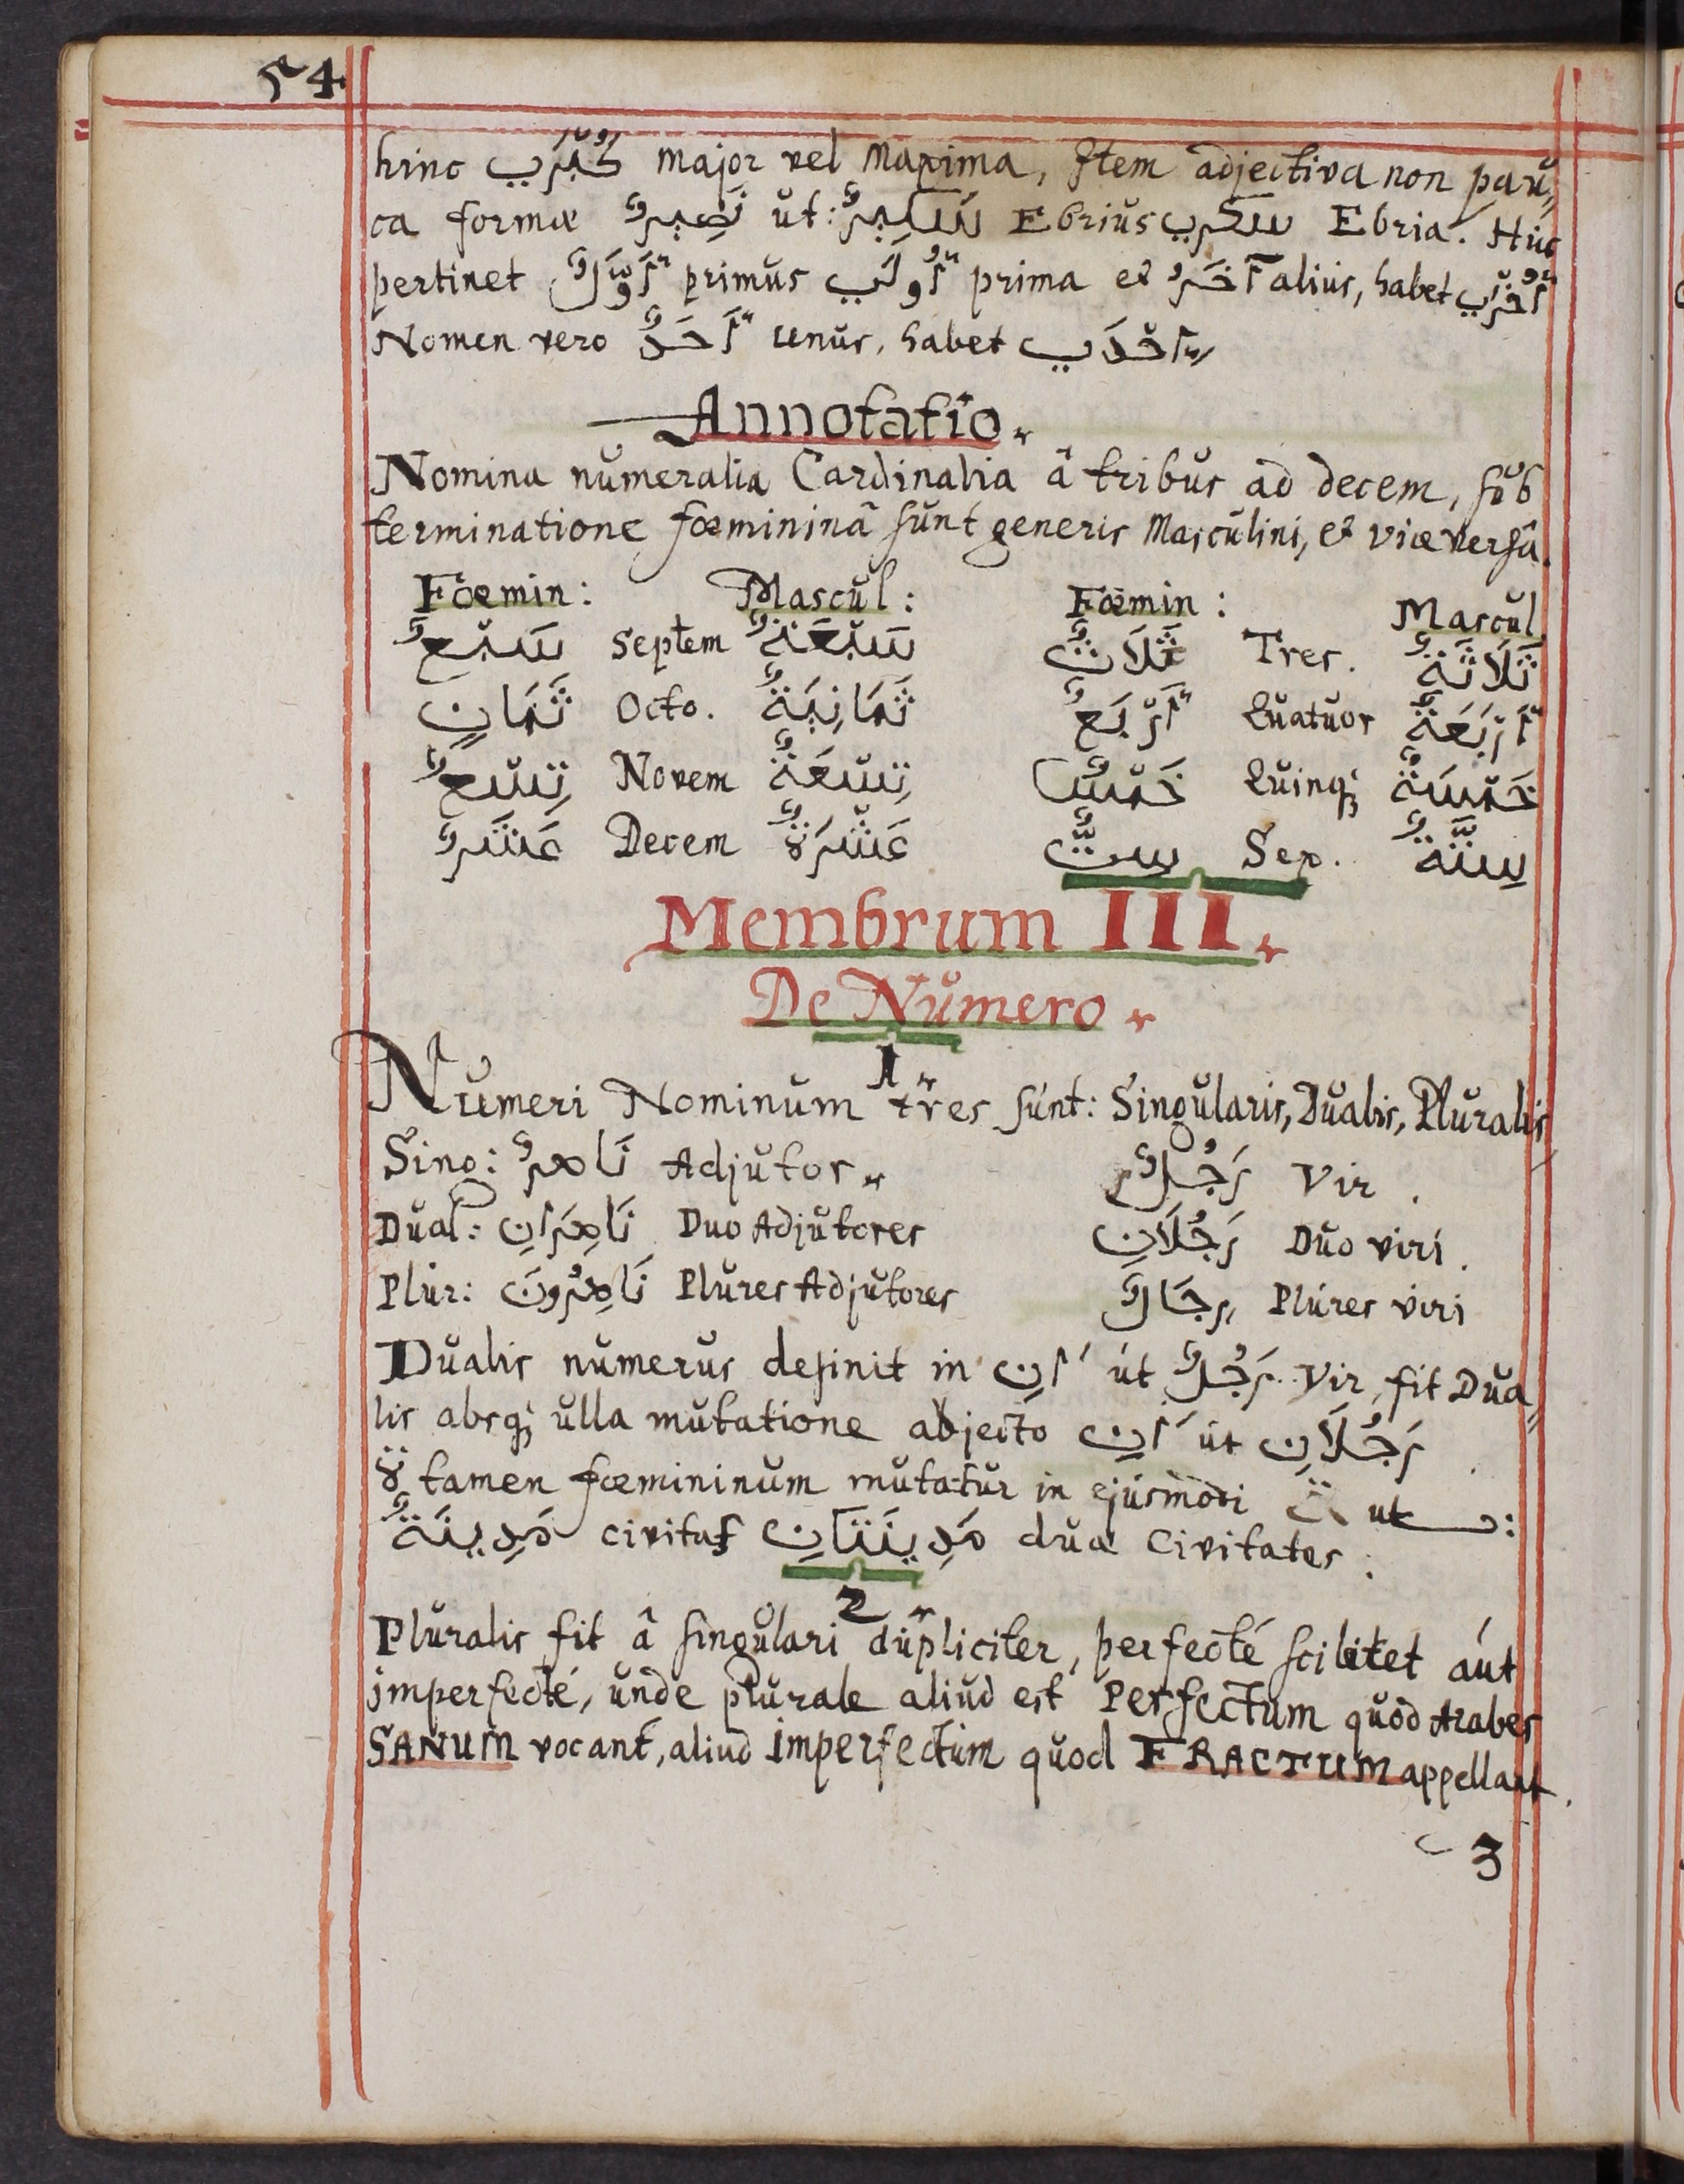 54.
hinc كُبْرَي major vel Maxima, Item adjectiva non paŭ„
ca formæ نَصِيرٌ ŭt: سَكِيرٌ Ebriŭs سكري Ebria. Hŭc
pertinet أَوَّلٌ primŭs أُولَي prima et آخَرُ aliŭs, habet أُخْرَي
Nomen vero أَحَدٌ unŭs, habet إحْدَي
Annotatio.
Nomina nŭmeralia Cardinalia â tribŭs ad decem, sŭb
terminatione fœmininâ sŭnt generis Mascŭlini, et viceversâ.
Fœmin: Mascŭl: Fœmin: Mascŭl
سَبْعٌ Septem سَبْعَةٌ ثَلَاثٌ Tres. ثَلَاثَةٌ
ثَمَانٍ Octo. ثَمَانِيَةٌ أَرْبَعٌ Quatŭor أَرْبَعَةٌ
تِسْعٌ Novem تِسْعَةٌ خَمْسٌ Quinq; خَمْسَةٌ
عَشَرٌ Decem عَشْرَةٌ سِتٌّ Sex. سِتَّةٌ
Membrum III.
De Nŭmero.
1
Nŭmeri Nominŭm tres sŭnt: Singŭlaris, Dŭalis, Plŭralis
Sing: نَاصرٌ Adjŭtor. رَجُلٌ Vir.
Dŭal: نَاصِرَانِ Duo Adjŭtores رَجُلَانِ Dŭo viri.
Plŭr: نَاصِرُونَ Plŭres Adjŭtores رجَالٌ Plŭres viri
Dŭalis nŭmerŭs definit in َانِ ŭt رَجُلٌ Vir, fit Dŭa„
lis absq; ŭlla mŭtatione abjecto َانِ ŭt رَجُلَانِ
ة tamen fœmininŭm mŭtatŭr in ejŭsmodi ت ut:
مَدِينَةٌ civitas مَدِينَتَانِ dŭæ Civitates:
2
Plŭralis fit â singŭlari dŭpliciter, perfecté scilicet aŭt
imperfecté, ŭnde plŭrale aliŭd est Perfectum qŭod Arabes
SANUM vocant, aliud imperfectŭm qŭod FRACTUM appellant.
3